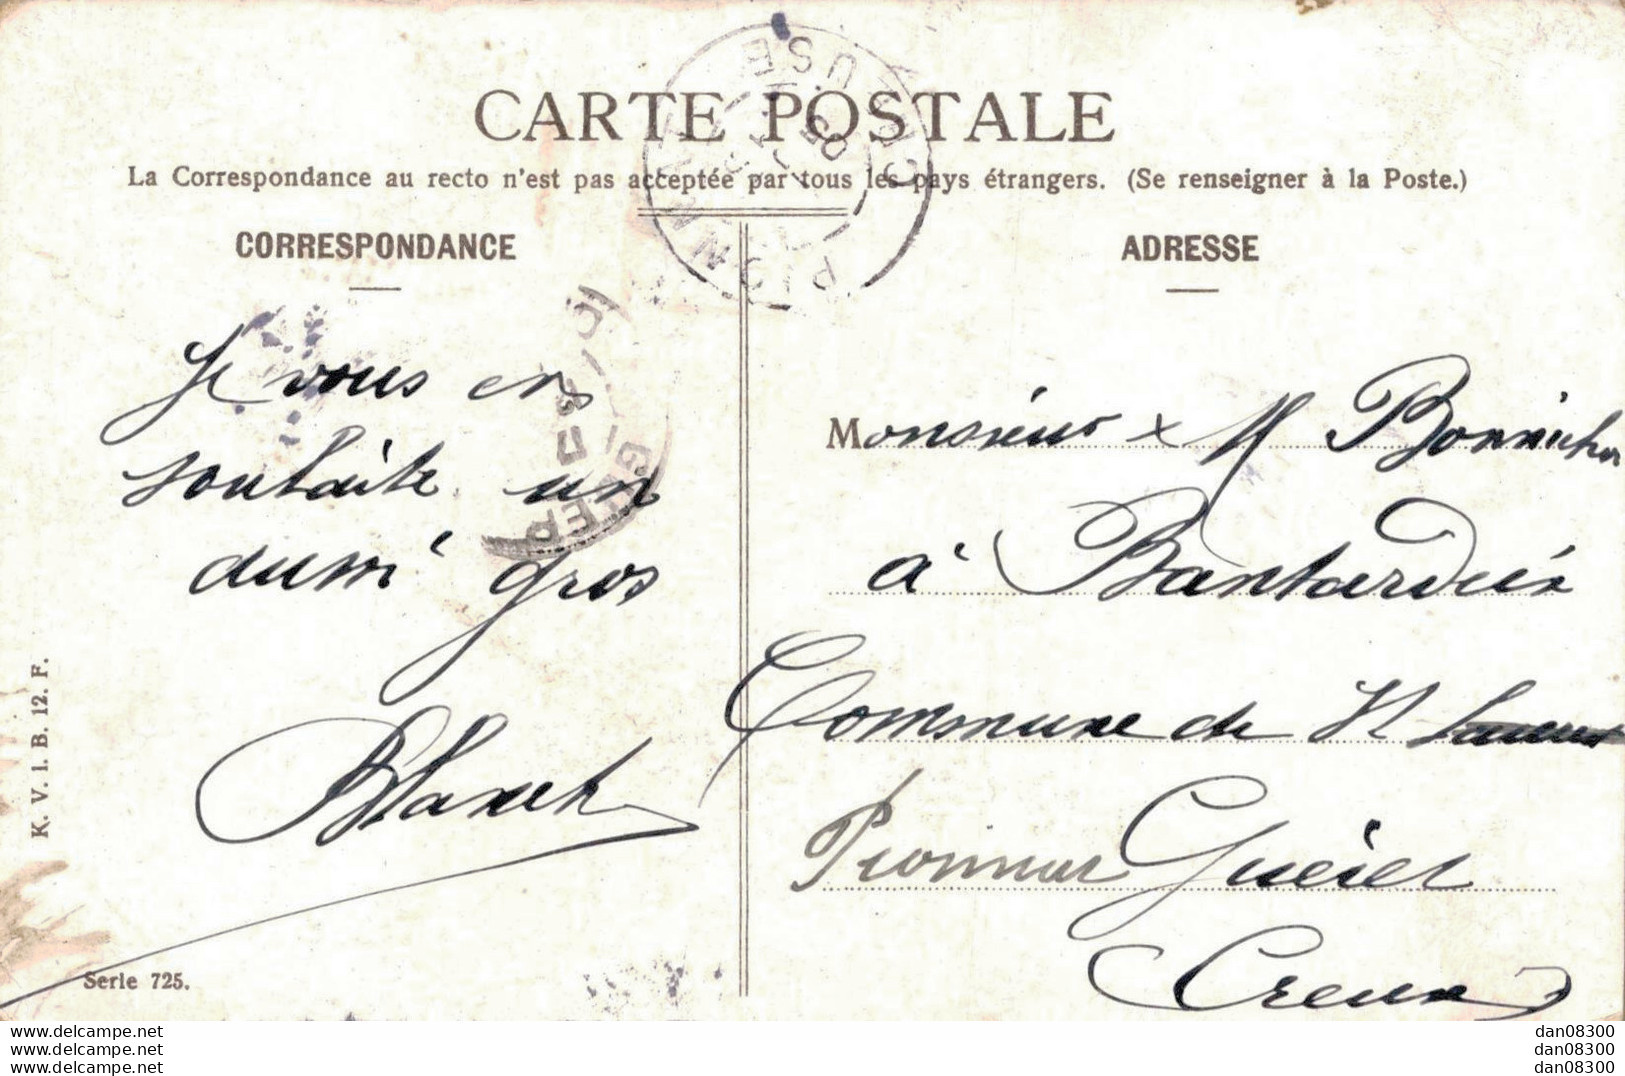 CARTE POSTALE
La Correspondance au recto n'est pas acceptée par tous les pays étrangers. (Se renseigner à la Poste.)
CORRESPONDANCE
Je vous en
souhaite un
aussi gros
Blanch
ADRESSE
Monsieur x M Bonnichon
à Bantardeix
Commune de St
Pionnat Guéret
Creuse
PIONNAT
CREUSE
K. V. i. B. 12. F.
Serie 725.
www.delcampe.net
www.delcampe.net
www.delcampe.net
dan08300
dan08300
dan08300